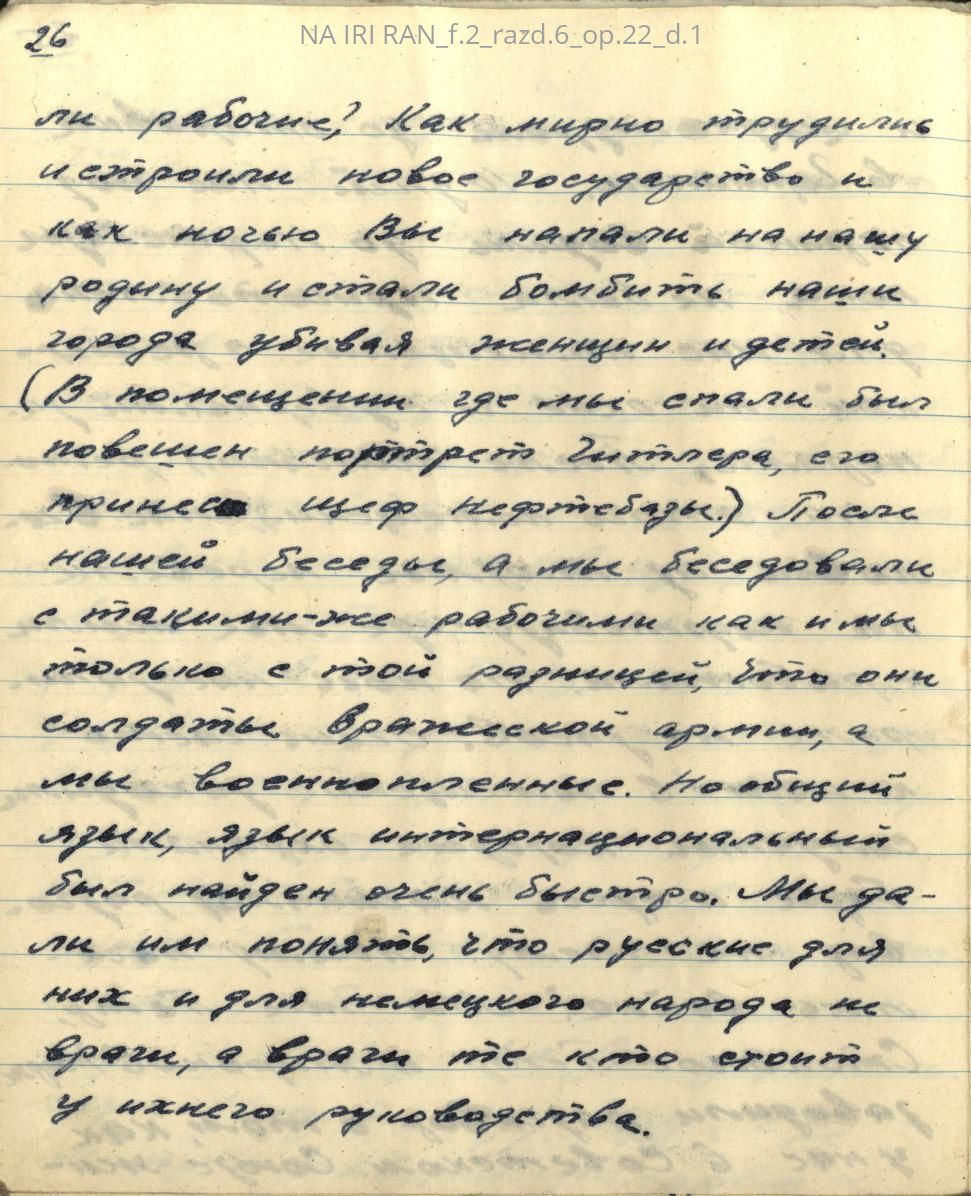 NA IRI RAN_f.2_razd.6_op.22_d.1
26
ли рабочие? Как мирно трудились
и строили новое государство и
как ночью Вы напали на нашу
родину и стали бомбить наши
города убивая женщин и детей.
(В помещении где мы спали был
повешен портрет Гитлера, его
принес шеф нефтебазы.) После
нашей беседы, а мы беседовали
с такими-же рабочими как и мы
только с той разницей, что они
солдаты вражеской армии, а
мы военнопленные. Но общий
язык, язык интернациональный
был найден очень быстро. Мы да-
ли им понять, что русские для
них и для немецкого народа не
враги, а враги те кто стоит
у ихнего руководства.